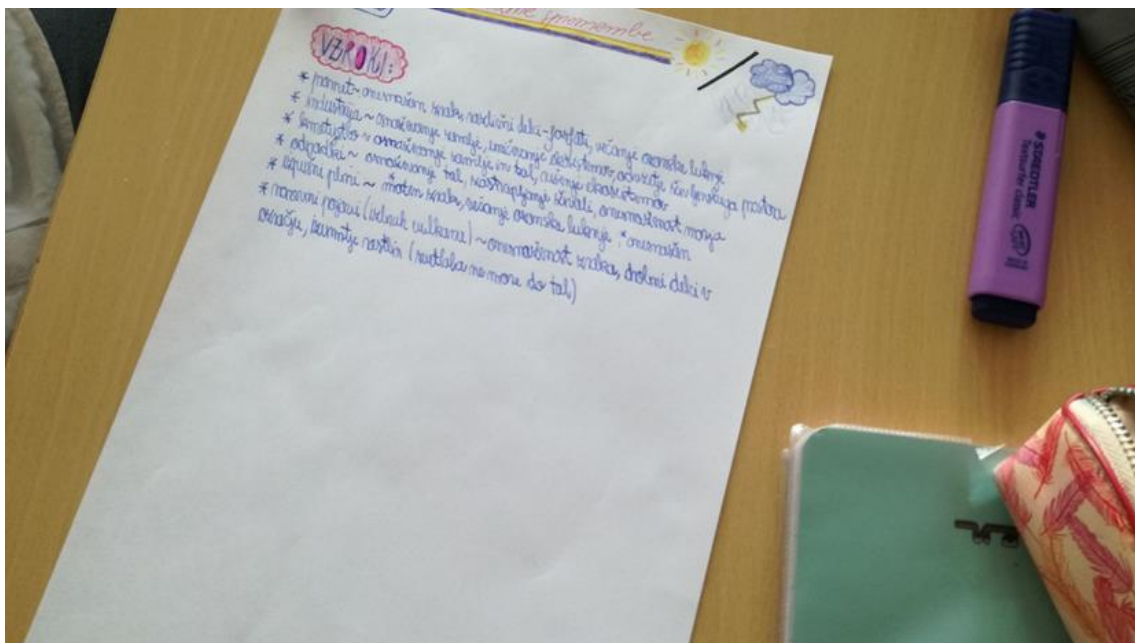 spremembe
VZROKI:
* promet ~ onesnažen zrak, različni delci - fosfati, večanje ozonske luknje
* industrija ~ onesnaževanje zemlje, uničevanje ekosistemov, odvzetje življenjskega prostora
* kmetijstvo ~ onesnaževanje zemlje in tal, rušenje ekosistemov
* odpadki ~ onesnaževanje tal, zastrupljanje živali, onesnaženost morja
* izpušni plini ~ moten zrak, večanje ozonske luknje, onesnažen
* naravni pojavi (izbruh vulkana) ~ onesnaženost zraka, drobni delci v
ozračju, izumrtje rastlin (svetloba ne more do tal)
STAEDTLER
Textsurfer Classic